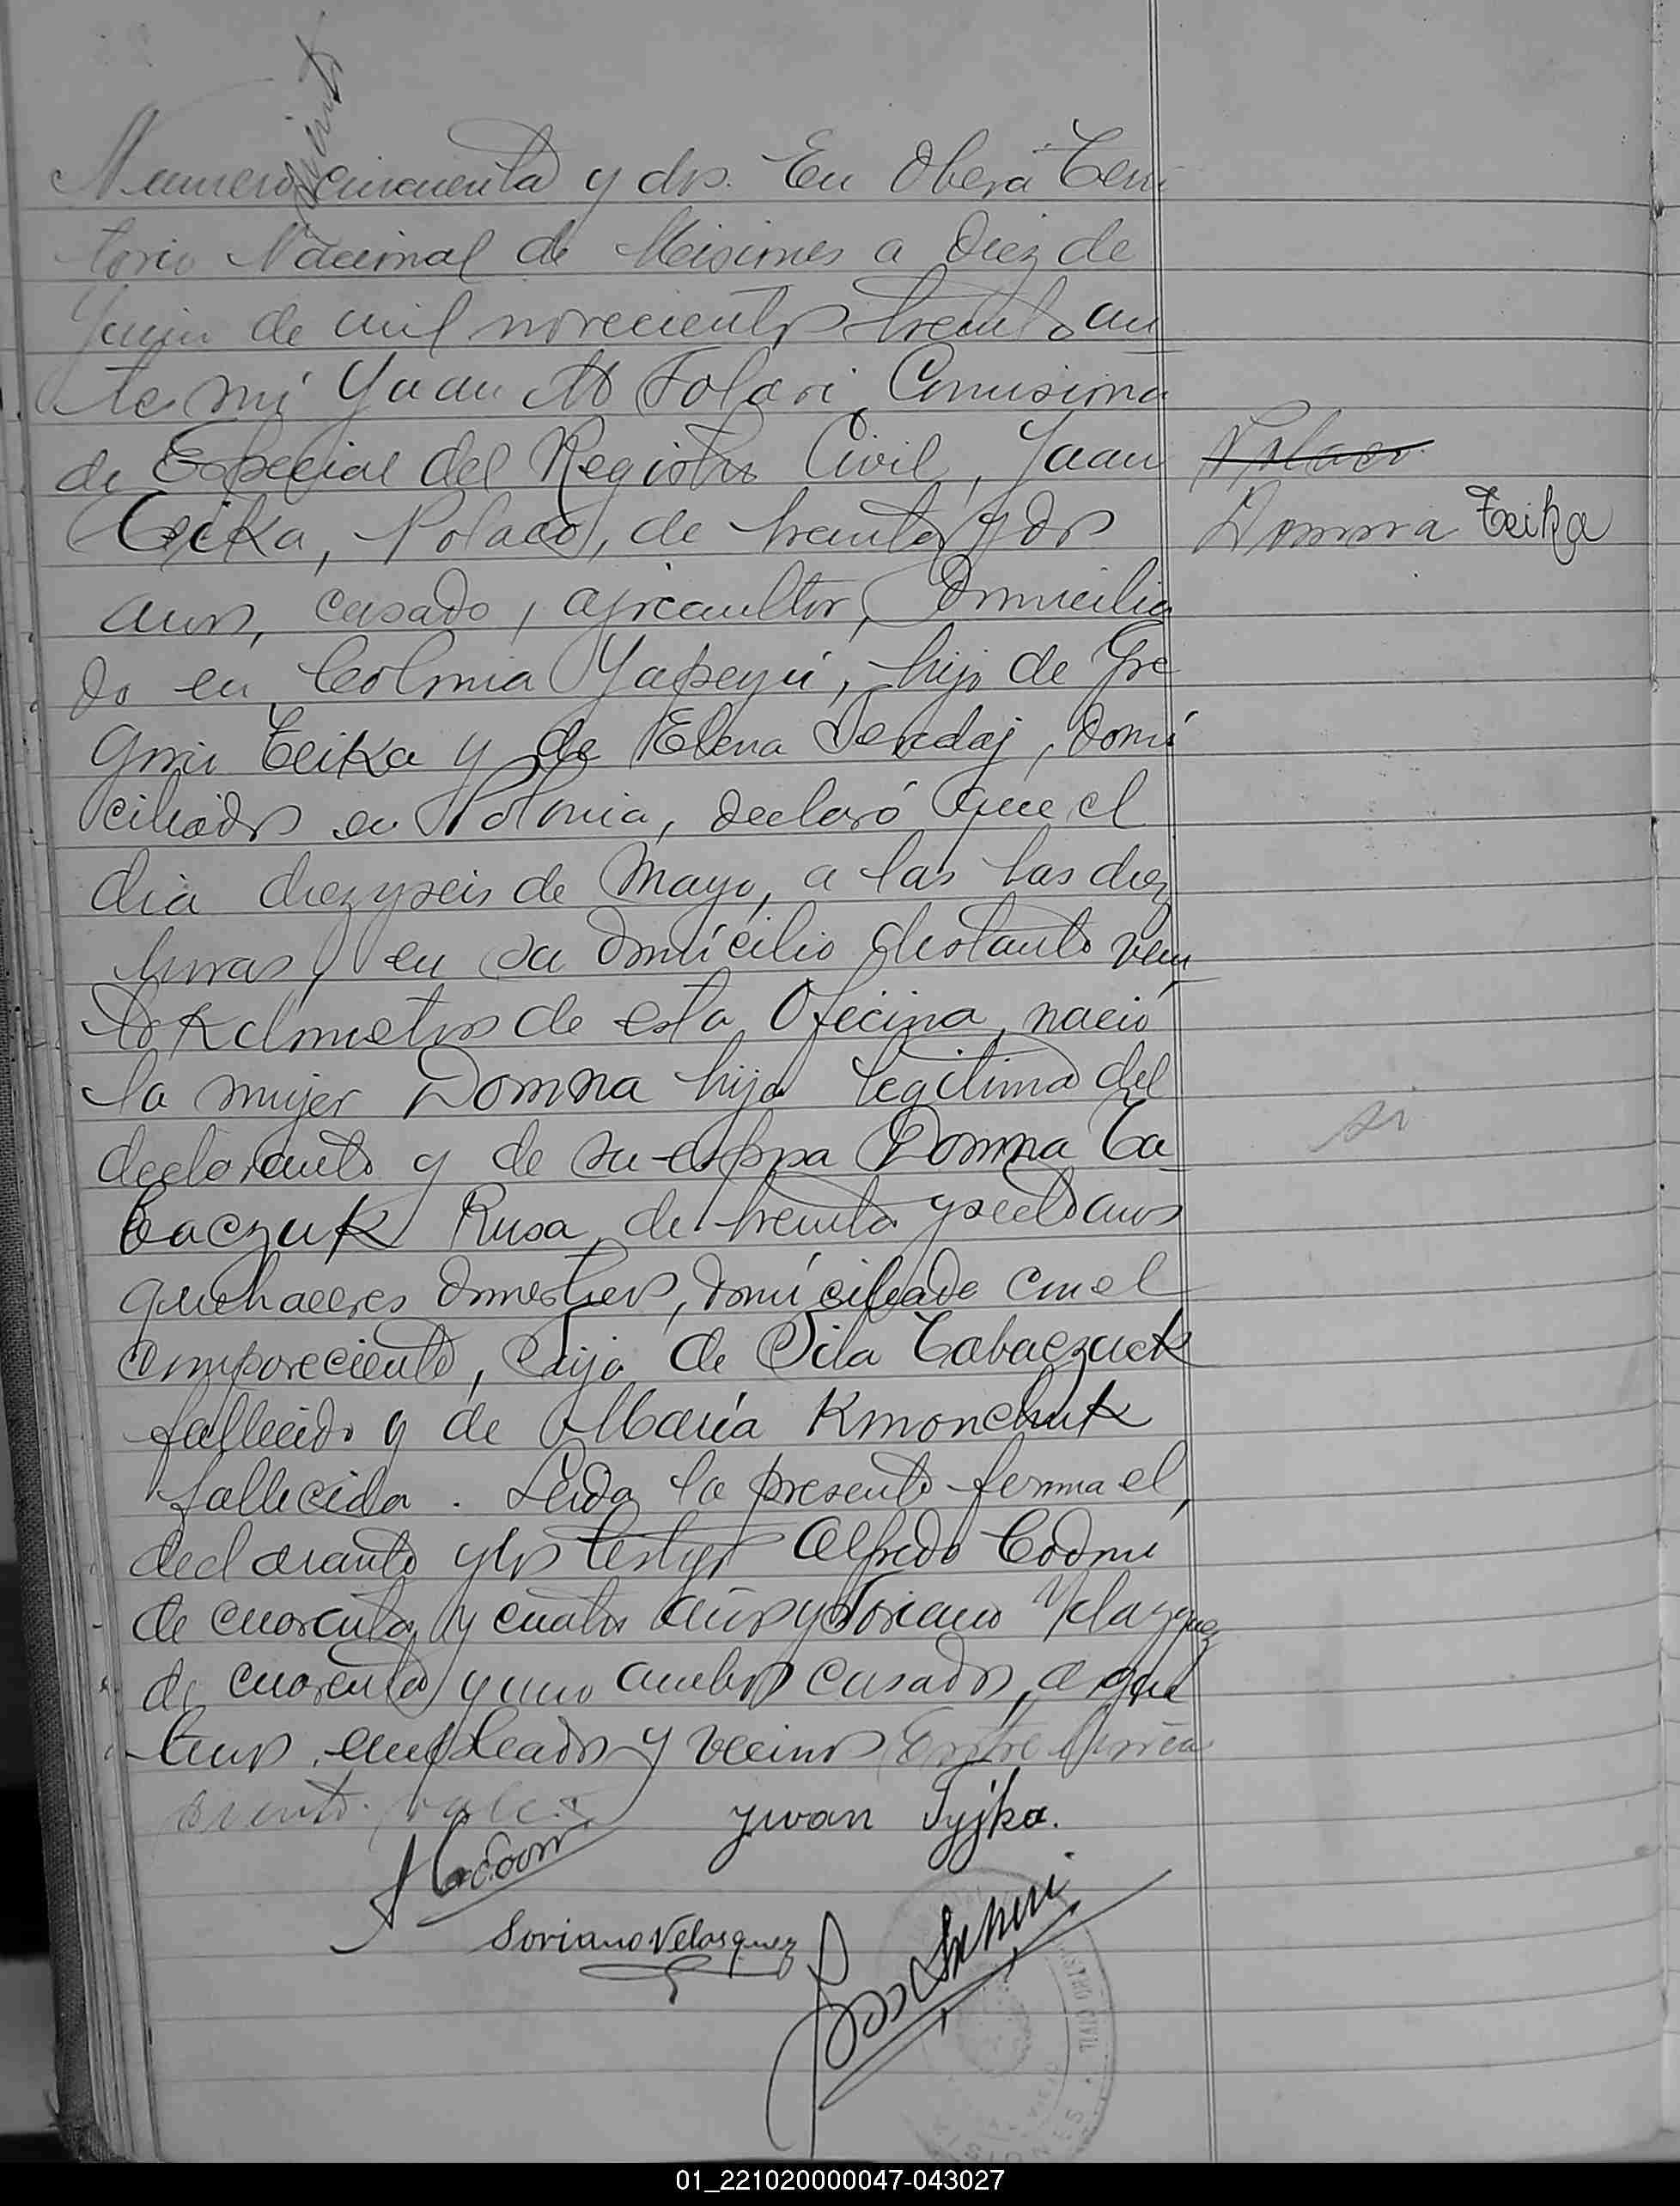 ciento
Numero cincuenta y dos. En Oberá Terri
torio Nacional de Misiones a Diez de
Junio de mil novecientos treinta an
te mi Juan M Folari Comisiona
do Especial del Registro Civil, Juan
Teika, Polaco, de treinta y dos
años, casado, agricultor, Domicilia
do en Colonia Yapeyú, hijo de Gre
gorio Teika y de Elena, domi
ciliados en Polonia, declaró que el
dia diez y seis de Mayo, a las las diez
horas, en su domicilio distante vein
te Kilometros de esta Oficina, nació
la mujer Domna hija legitima del
declarante y de su esposa Domna Ta-
baczuk Rusa, de treinta y siete años
quehaceres domesticos, domiciliada con el
compareciente, hija de Sila Tabaczuck
fallecido y de María Kmonchuk
fallecida. Leida la presente firma el,
declarante y los testigos Alfredo Codoni
de cuarenta y cuatro años y Soriano Velazquez
de cuarenta y uno ambos casados, argen
tinos, empleados y vecinos Entre linea
ciento. Vale.
Polaco
Domna Teika
si
Jwan Tyjka.
Soriano Velasquez
REGISTRO CIVIL
MISIONES
01_221020000047-043027